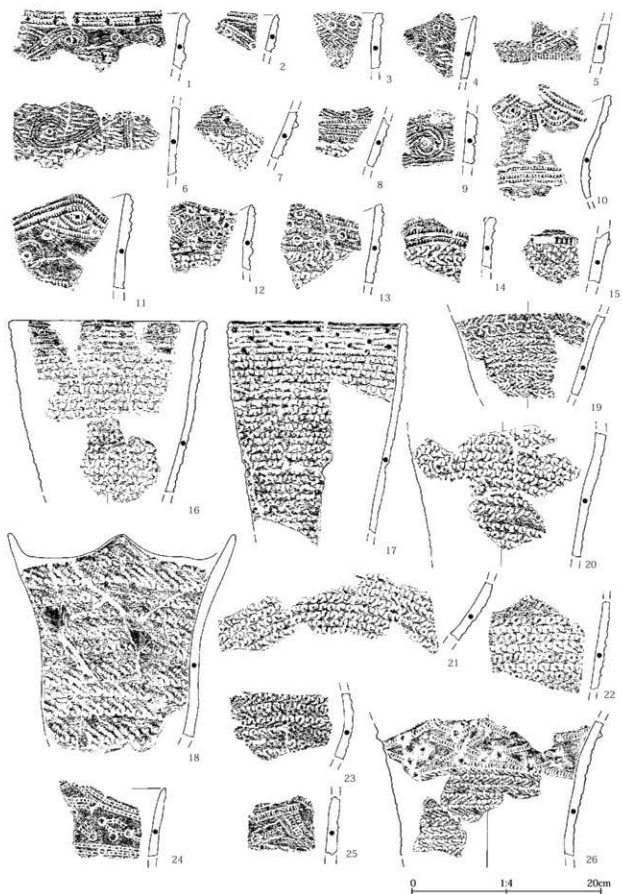 1 2 3 4 5
6 7 8 9 10
11 12 13 14 15
16 17 19
20
18 21 22
23
24 25 26
0 1:4 20cm